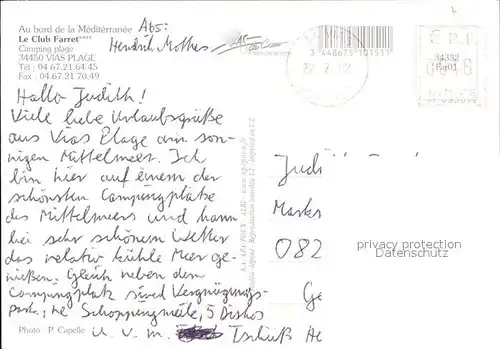 Au bord de la Méditerranée
Le Club Farret****
Camping plage
34450 VIAS PLAGE
Tél : 04.67.21.64.45
Fax : 04.67.21.70.49
Abs:
Hendrik Mothes
3 448675 101511
34332
Par01
Hallo Judith!
Viele liebe Urlaubsgrüße
aus Vias Plage am son-
nigen Mittelmeer. Ich
bin hier auf einem der
schönsten Campingplätze
des Mittelmeers und kann
bei sehr schönem Wetter
das relativ kühle Meer ge-
nießen. Gleich neben dem
Campingplatz sind Vergnügungs-
park, ne Schoppingmeile, 5 Diskos
u. v. m. Tschüß
Photo P. Capelle
Judi
082
privacy protection
Datenschutz
Ge